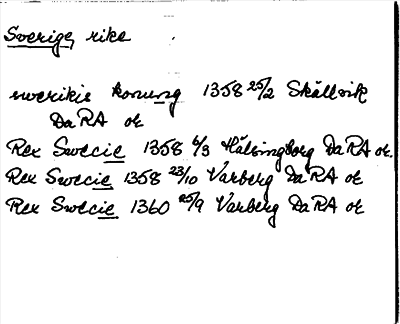 Sverige, rike
swerikis konung 1358 25/2 Skällvik
DaRA or
Rex Swecie 1358 6/3 Hälsingborg DaRA or.
Rex Swecie 1358 23/10 Varberg DaRA or
Rex Swecie 1360 25/9 Varberg DaRA or